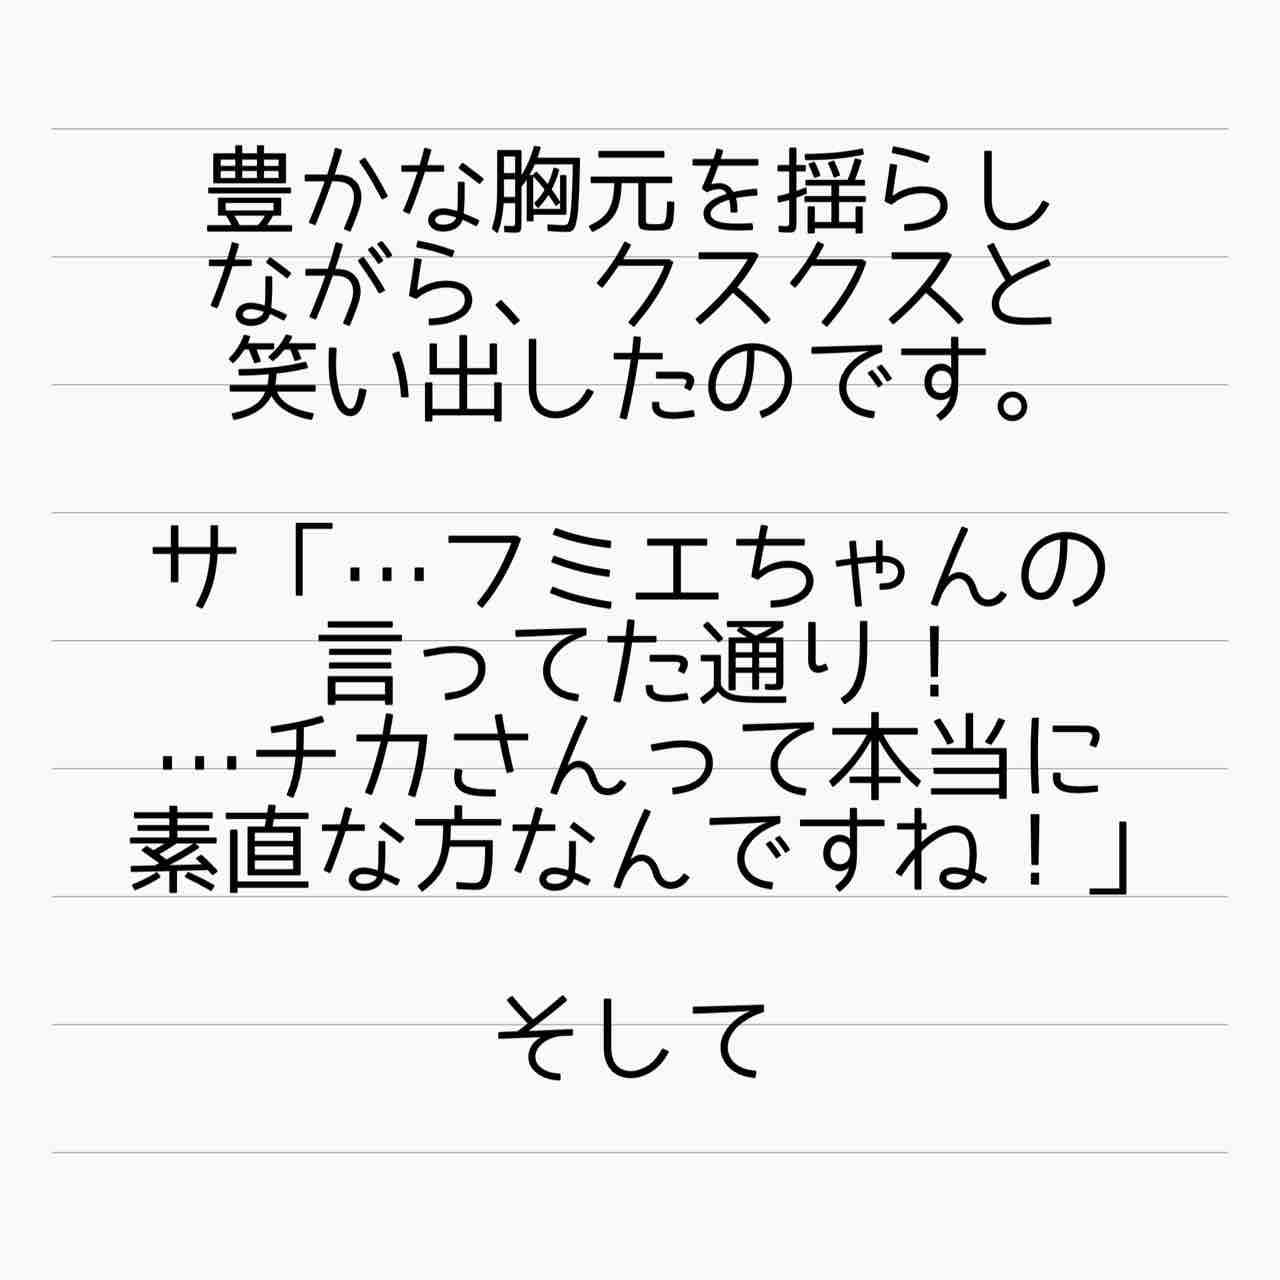 豊かな胸元を揺らし
ながら、クスクスと
笑い出したのです。
サ「…フミエちゃんの
言ってた通り！
…チカさんって本当に
素直な方なんですね！」
そして